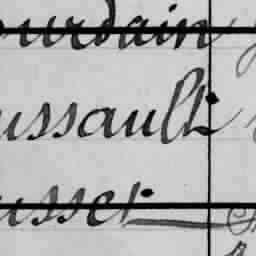 ourdain
ussault
usset